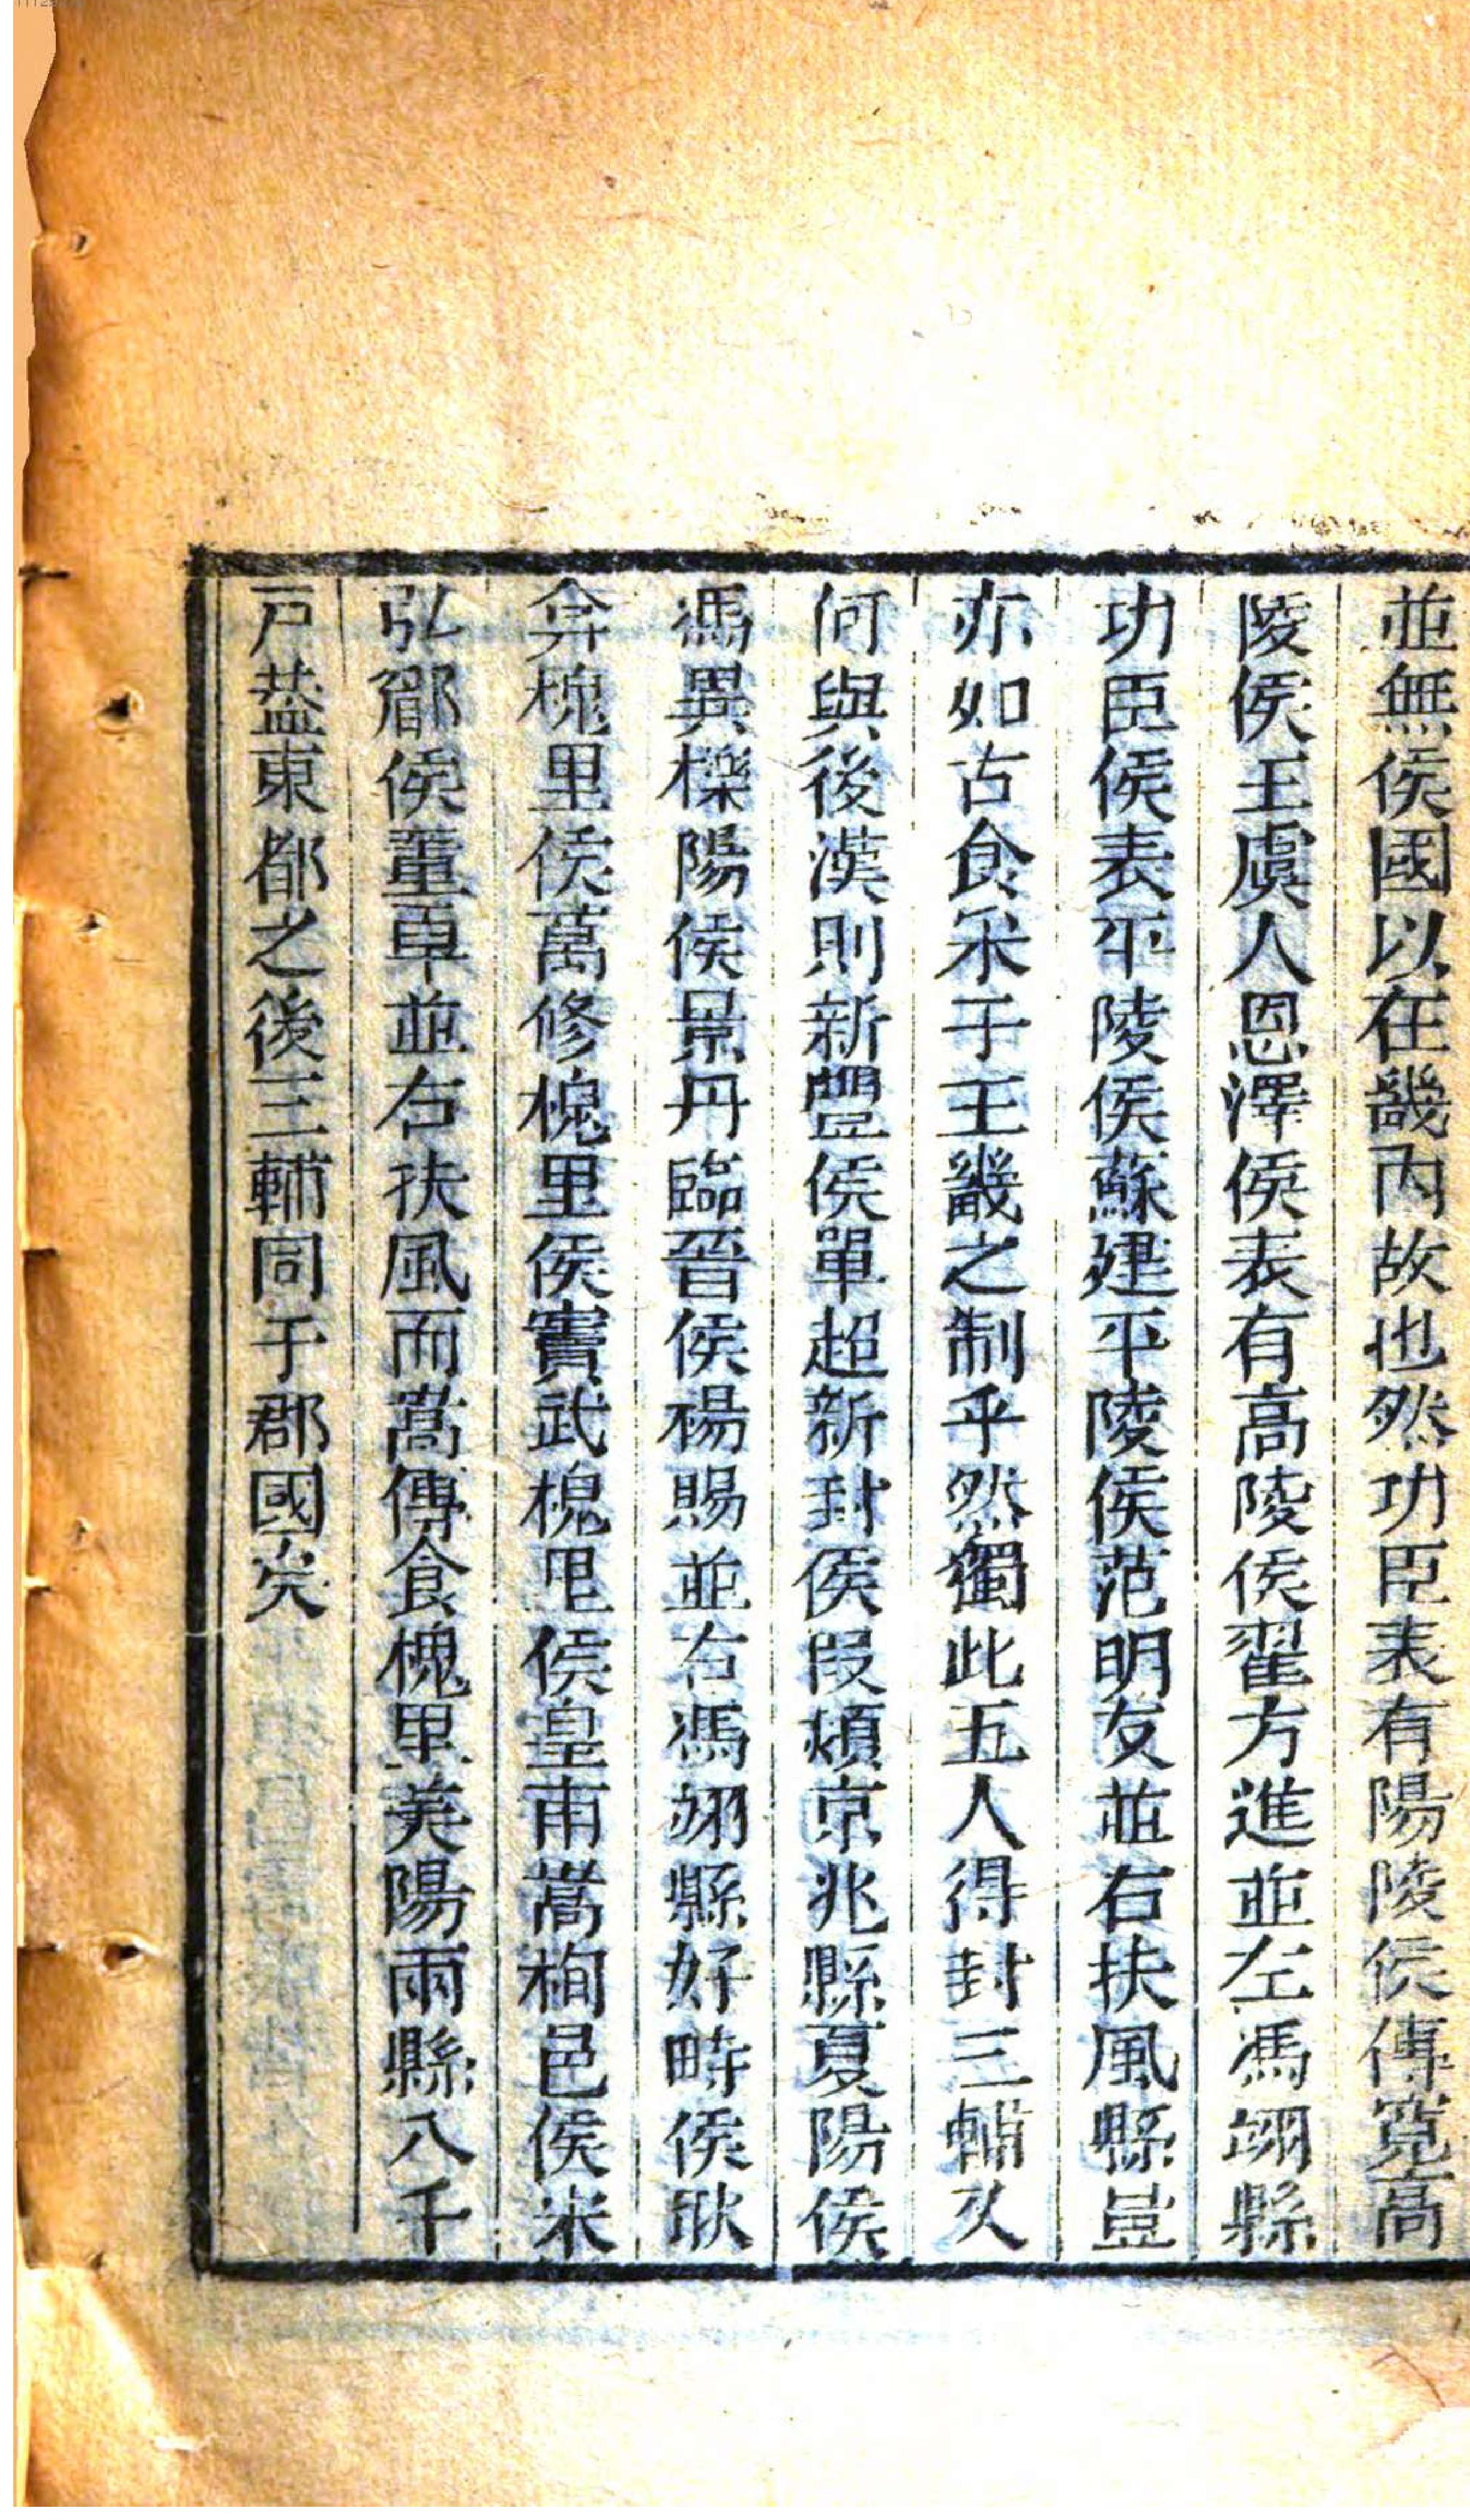 並無侯國以在畿内故也然功臣表有陽陵侯傅寛高
陵侯王虞人恩澤侯表有高陵侯翟方進並左馮翊縣
功臣侯表平陵侯蘇建平陵侯范明友並右扶風縣豈
亦如古食采于王畿之制乎然獨此五人得封三輔又
何與後漢則新豐侯單超新封侯段熲京兆縣夏陽侯
馮異櫟陽侯景丹臨晉侯楊賜並右馮翊縣好畤侯耿
弇槐里侯萬修槐里侯竇武槐里侯皇甫嵩栒邑侯宋
弘郿侯董卓並右扶風而嵩傳食槐里美陽兩縣八千
戸葢東都之後三輔同于郡國矣